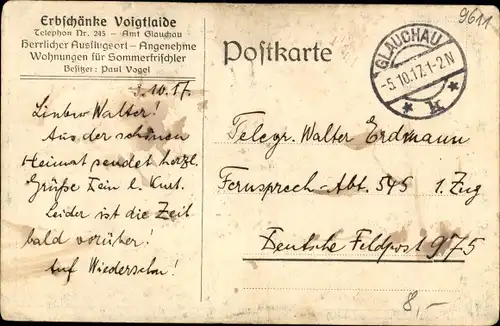 Erbschänke Voigtlaide
Telephon Nr. 245 – Amt Glauchau
Herrlicher Ausflugsort – Angenehme
Wohnungen für Sommerfrischler
Besitzer: Paul Vogel
Postkarte
9611
GLAUCHAU
-5.10.17.1-2N
* k *
5.10.17.
Lieber Walter!
Aus der schönen
Heimat sendet herzl.
Grüße Dein l. Kurt.
Leider ist die Zeit
bald vorüber!
Auf Wiedersehn!
Telegr. Walter Erdmann
Fernsprech-Abt. 545 1. Zug
Deutsche Feldpost 975
8,–